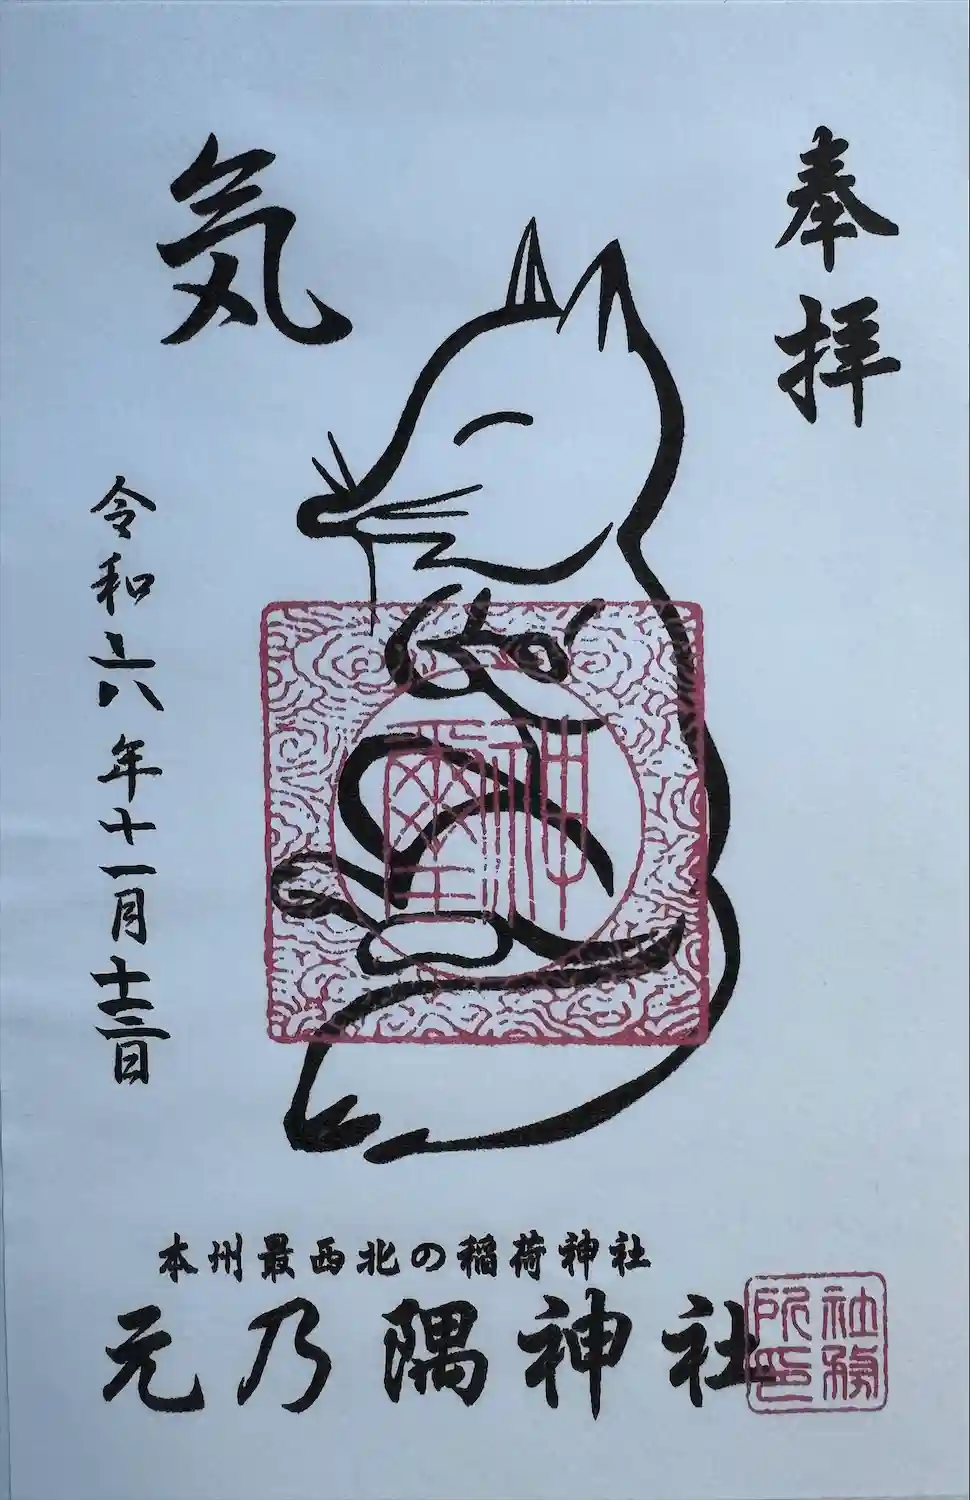 奉拝
気
神璽
令和六年十一月十二日
本州最西北の稲荷神社
元乃隅神社
社務所印